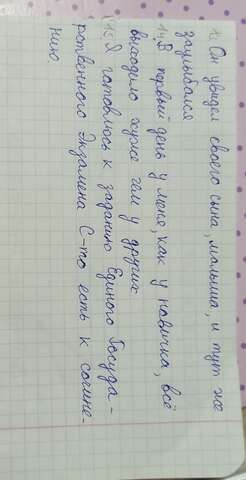 13. Он увидел своего сына, малыша, и тут же
заулыбался
14. В первый день у меня, как у новичка, всё
выходило хуже чем у других
15 Я готовлюсь к заданию Единого Госуда-
рственного Экзамена С-то есть к сочине-
нию